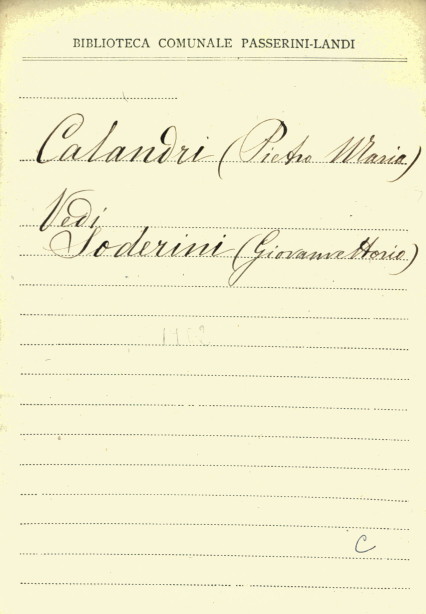 BIBLIOTECA COMUNALE PASSERINI-LANDI
Calandri (Pietro Maria)
Vedi
Soderini (Giovanvettorio)
C